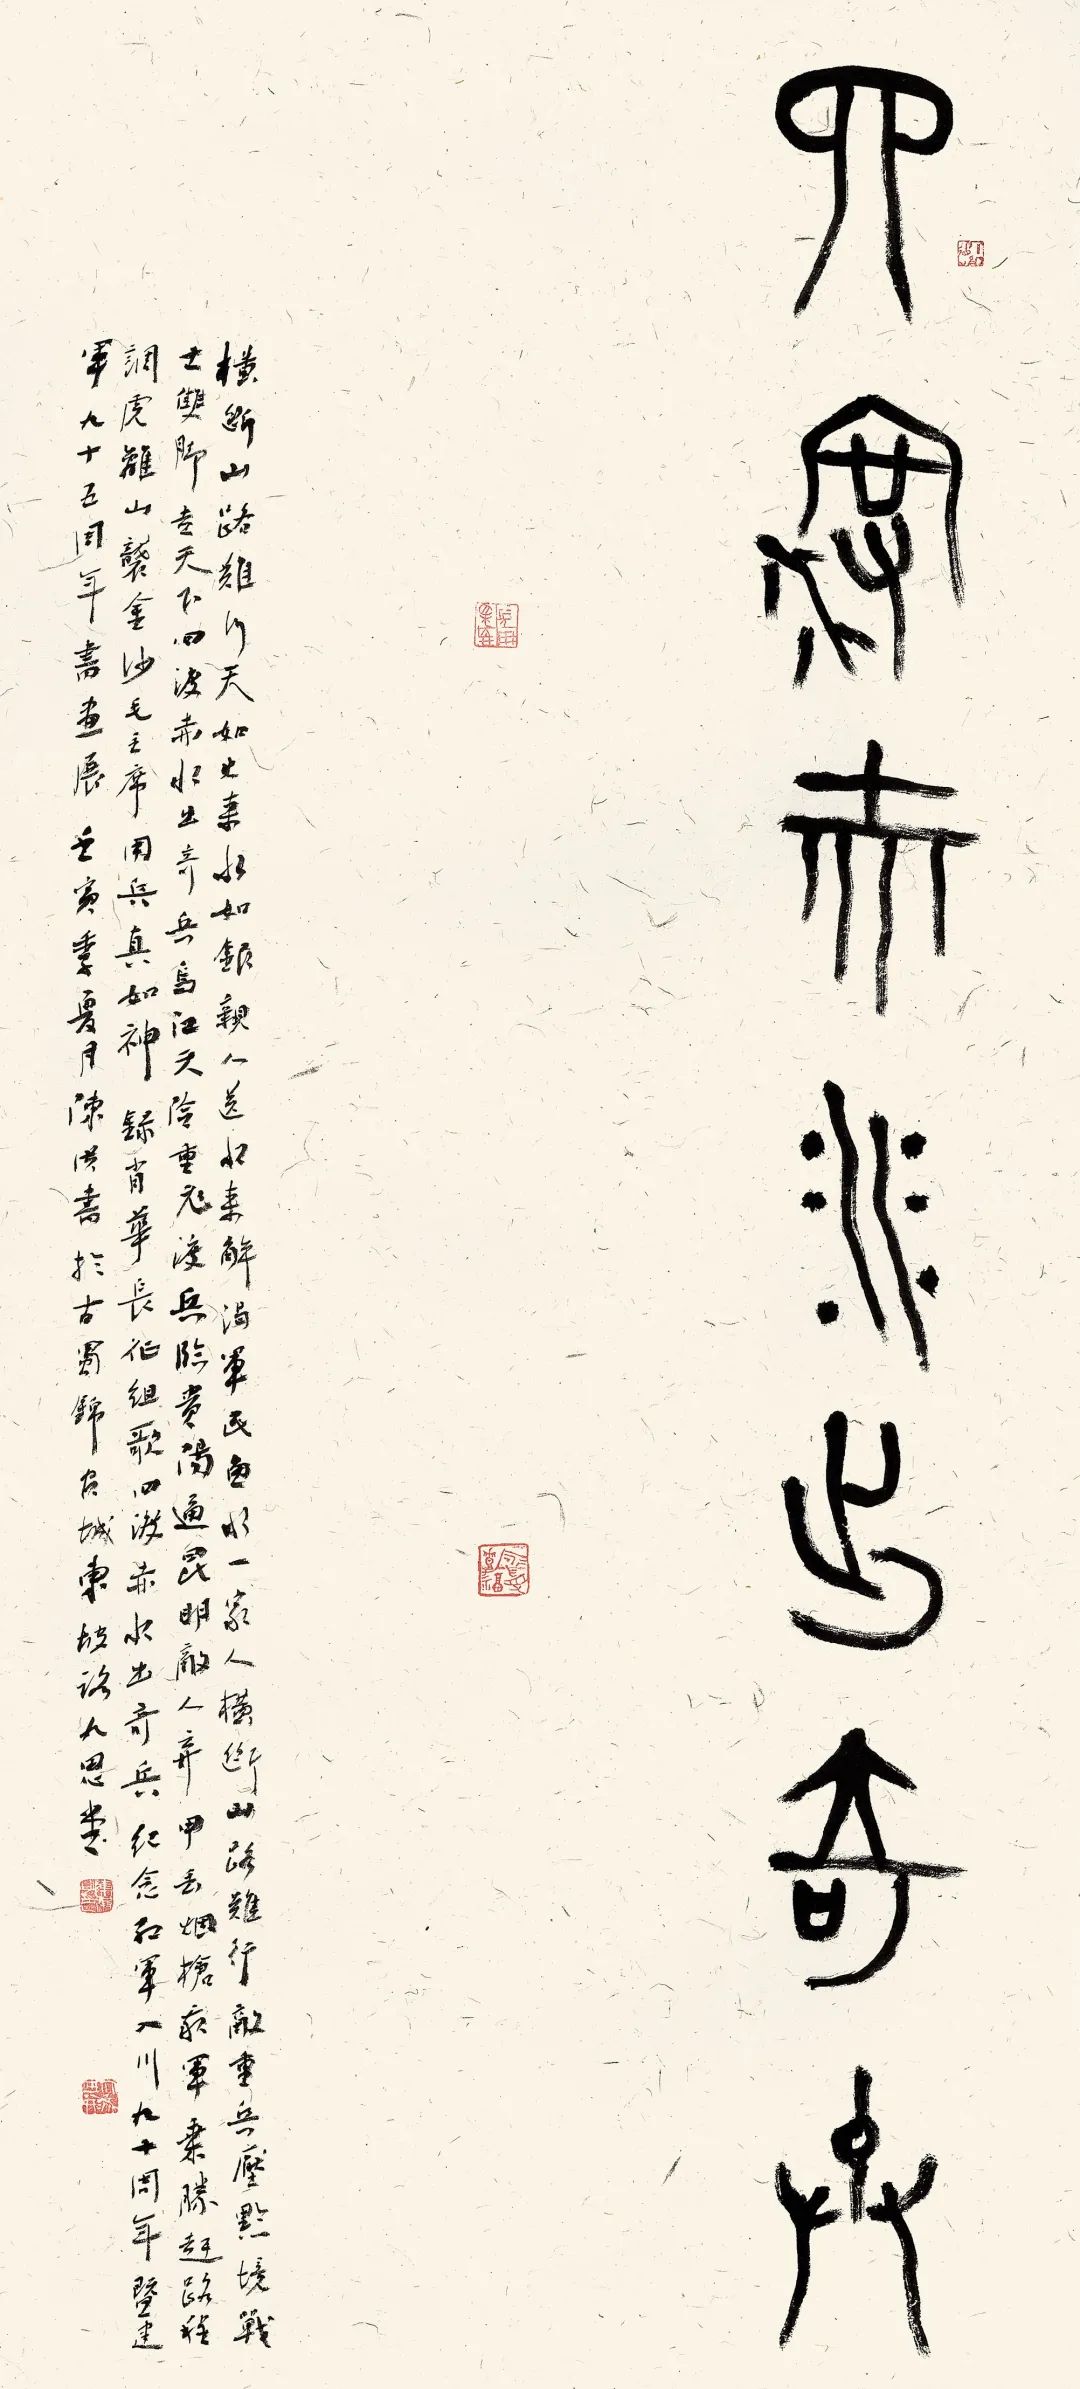 四渡赤水出奇兵
橫斷山路難行天如火來水如銀親人送水來解渴軍民魚水一家人橫斷山路難行敵重兵壓黔境戰
士雙脚走天下四渡赤水出奇兵烏江天險重飛渡兵臨貴陽逼昆明敵人棄甲丟烟槍我軍乘勝趕路程
調虎離山襲金沙毛主席用兵真如神 錄肖華長征組歌四渡赤水出奇兵紀念紅軍入川九十周年暨建
軍九十五周年書畫展 壬寅季夏月陳洪書於古蜀錦官城東坡路九思堂